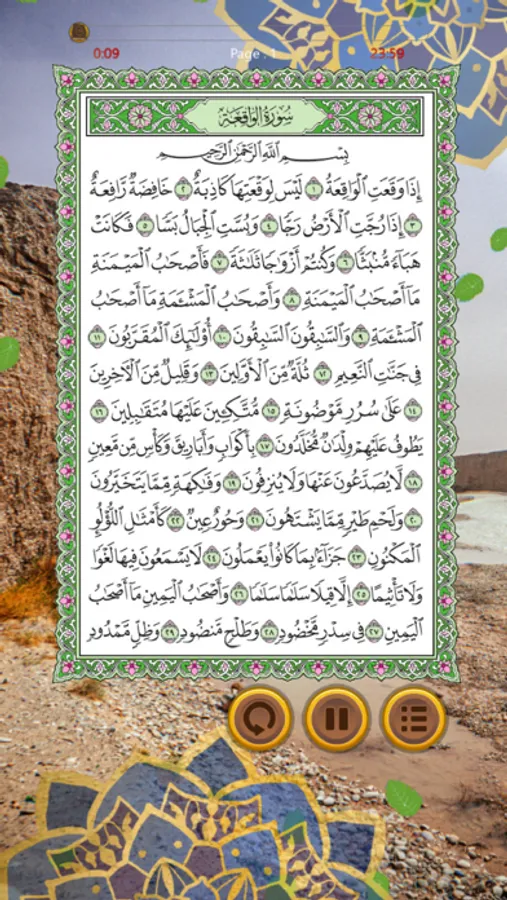 0:09 Page . 1 23:59
سُورَةُ الوَاقِعَةِ
بِسْمِ اللَّهِ الرَّحْمَٰنِ الرَّحِيمِ
إِذَا وَقَعَتِ الْوَاقِعَةُ ١ لَيْسَ لِوَقْعَتِهَا كَاذِبَةٌ ٢ خَافِضَةٌ رَّافِعَةٌ
٣ إِذَا رُجَّتِ الْأَرْضُ رَجًّا ٤ وَبُسَّتِ الْجِبَالُ بَسًّا ٥ فَكَانَتْ
هَبَاءً مُّنبَثًّا ٦ وَكُنتُمْ أَزْوَاجًا ثَلَاثَةً ٧ فَأَصْحَابُ الْمَيْمَنَةِ
مَا أَصْحَابُ الْمَيْمَنَةِ ٨ وَأَصْحَابُ الْمَشْأَمَةِ مَا أَصْحَابُ
الْمَشْأَمَةِ ٩ وَالسَّابِقُونَ السَّابِقُونَ ١٠ أُولَٰئِكَ الْمُقَرَّبُونَ ١١
فِي جَنَّاتِ النَّعِيمِ ١٢ ثُلَّةٌ مِّنَ الْأَوَّلِينَ ١٣ وَقَلِيلٌ مِّنَ الْآخِرِينَ
١٤ عَلَىٰ سُرُرٍ مَّوْضُونَةٍ ١٥ مُّتَّكِئِينَ عَلَيْهَا مُتَقَابِلِينَ ١٦
يَطُوفُ عَلَيْهِمْ وِلْدَانٌ مُّخَلَّدُونَ ١٧ بِأَكْوَابٍ وَأَبَارِيقَ وَكَأْسٍ مِّن مَّعِينٍ
١٨ لَّا يُصَدَّعُونَ عَنْهَا وَلَا يُنزِفُونَ ١٩ وَفَاكِهَةٍ مِّمَّا يَتَخَيَّرُونَ
٢٠ وَلَحْمِ طَيْرٍ مِّمَّا يَشْتَهُونَ ٢١ وَحُورٌ عِينٌ ٢٢ كَأَمْثَالِ اللُّؤْلُؤِ
الْمَكْنُونِ ٢٣ جَزَاءً بِمَا كَانُوا يَعْمَلُونَ ٢٤ لَا يَسْمَعُونَ فِيهَا لَغْوًا
وَلَا تَأْثِيمًا ٢٥ إِلَّا قِيلًا سَلَامًا سَلَامًا ٢٦ وَأَصْحَابُ الْيَمِينِ مَا أَصْحَابُ
الْيَمِينِ ٢٧ فِي سِدْرٍ مَّخْضُودٍ ٢٨ وَطَلْحٍ مَّنضُودٍ ٢٩ وَظِلٍّ مَّمْدُودٍ